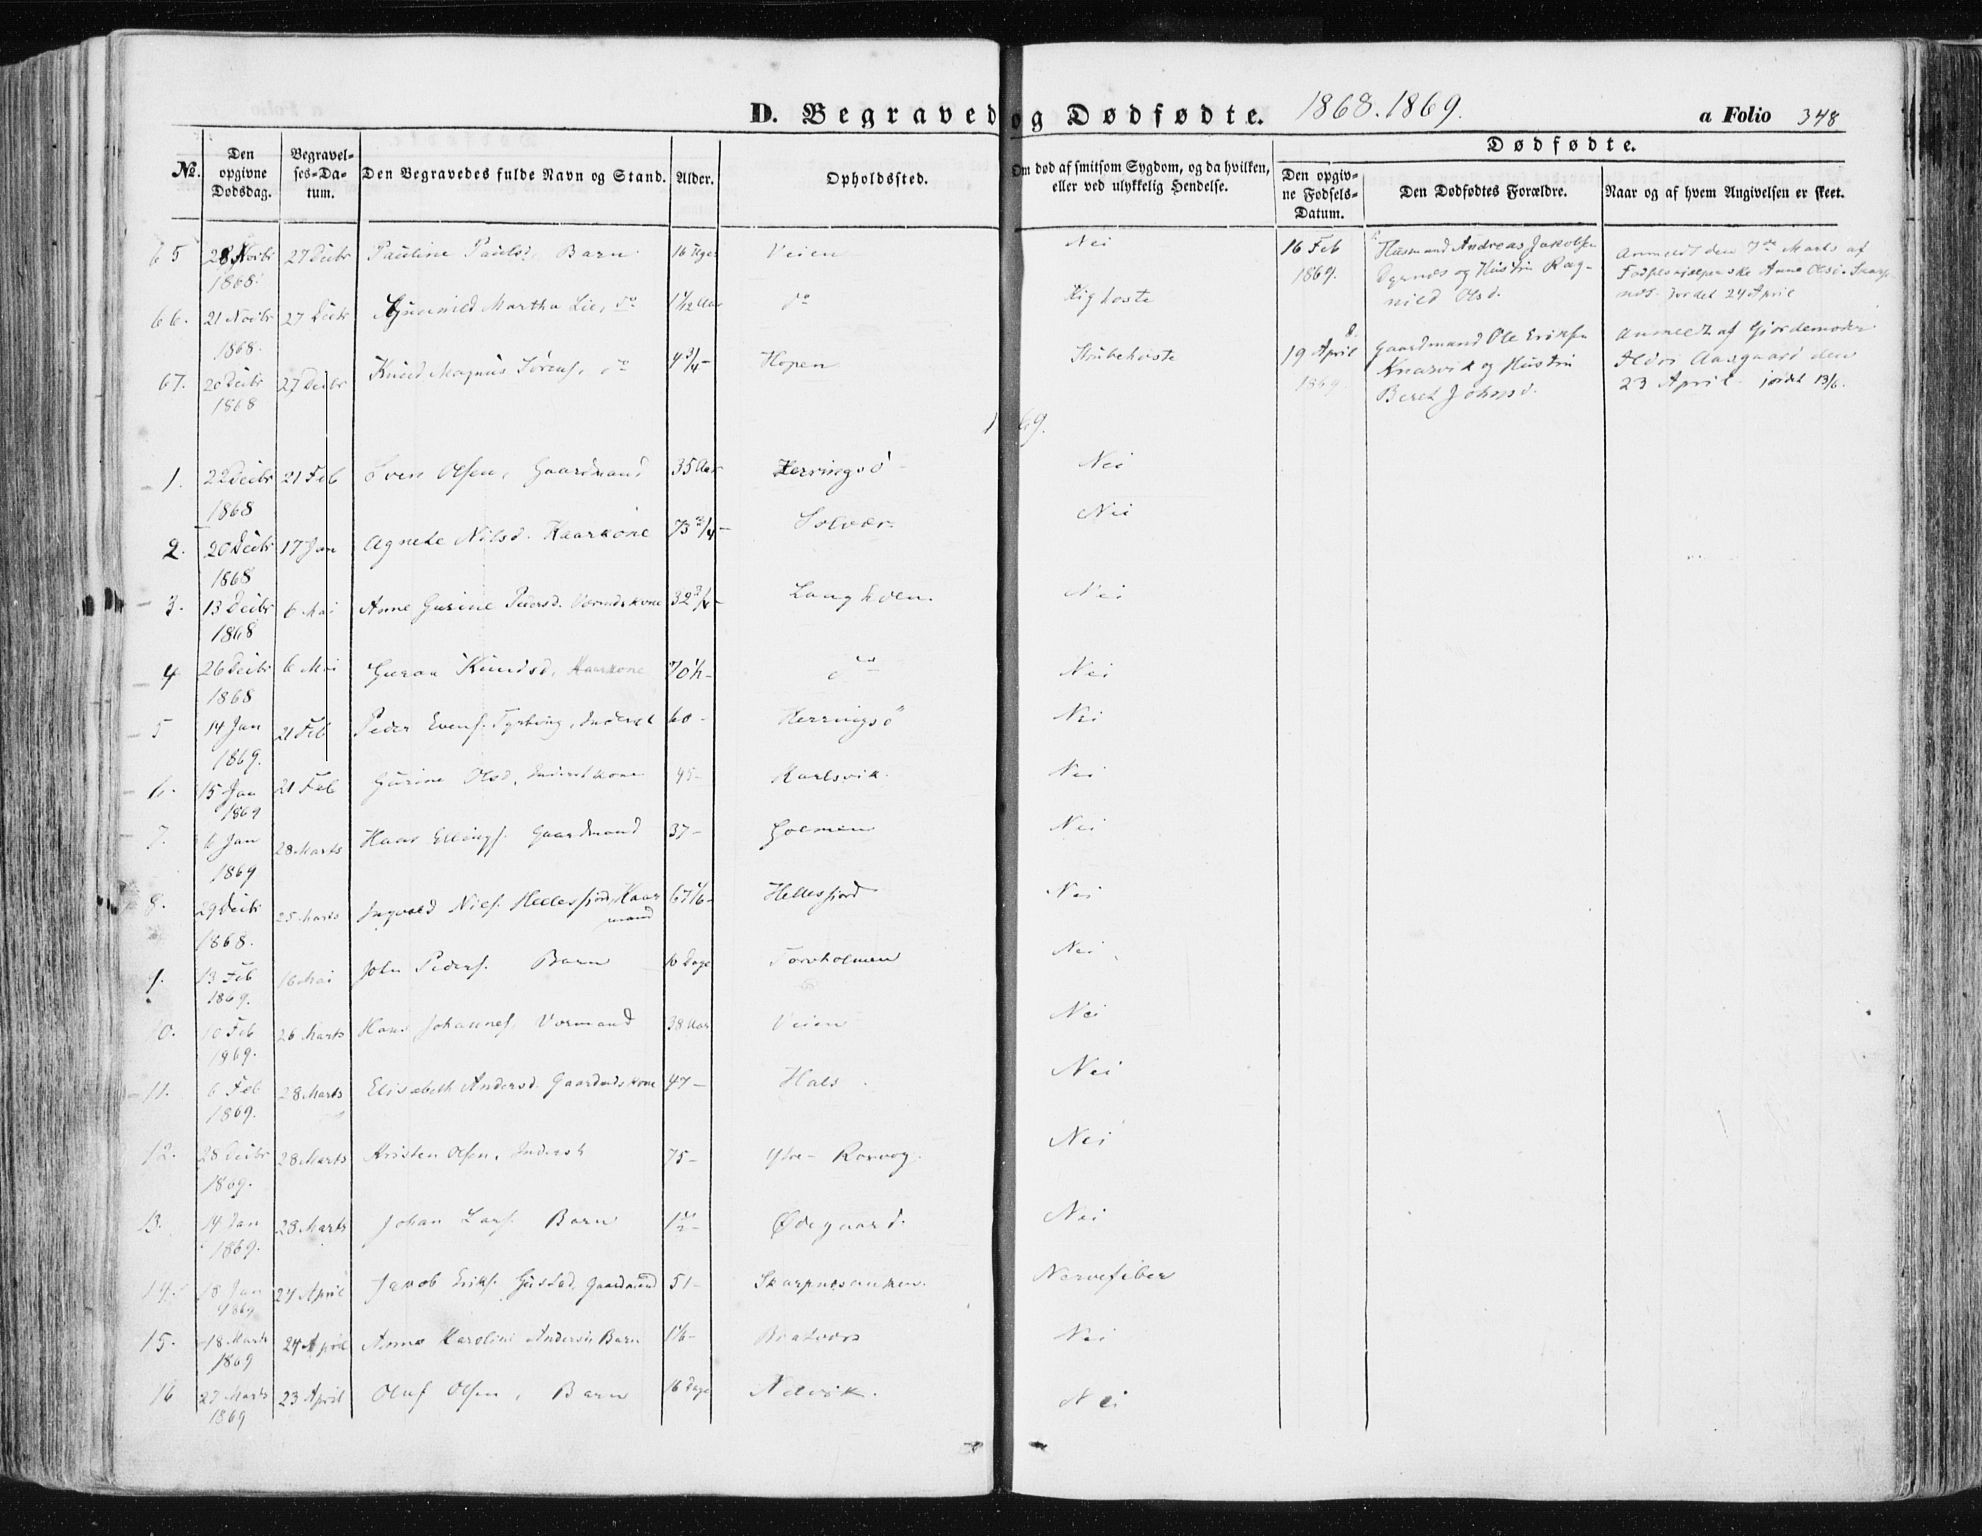 D. Begravede og Dødfødte. 1868. 1869. a Folio 348
Dødfødte.
No. Den opgivne Dødsdag. Begravelses-Datum. Den Begravedes fulde Navn og Stand. Alder. Opholdssted. Om død af smitsom Sygdom, og da hvilken, eller ved ulykkelig Hendelse. Den opgivne Fødsels-Datum. Den Dødfødtes Forældre. Naar og af hvem Angivelsen er skeet.
65 28 Novbr 1868. 27 Decbr Pauline Paulsd., Barn 16 Uger Veien Nei
66. 21 Novbr 1868. 27 Decbr Gunnild Martha Lie, do 1 1/2 Aar do Kighoste
67. 20 Decbr 1868 27 Decbr Knud Magnus Sørens. do 4 3/4 - Hopen Strubehoste
16 Feb 1869. Husmand Andreas Jakobsen Dyrnes og Hustru Ragnild Olsd. Anmeldt den 7de Marts af Anne Olsd. Skarpnes. Jordet 24 April
19 April 1869 Gaardmand Ole Eriksen Knarvik og Hustru Beret Johnsd. Anmeldt af Gjordemoder Aasgaard den 23 April jordet 13/6.
1869.
1. 22 Decbr 1868 21 Feb Sven Olsen, Gaardmand 35 Aar Herringsø Nei
2. 20 Decbr 1868 17 Jan Agnete Nilsd. Kaarkone 73 3/4 - Solvær Nei
3. 13 Decbr 1868 6 Mai Anne Gurine Pedersd. 32 3/4 - Langhølen. Nei
4 26 Decbr 1868 6 Mai Guroe Knudsd, Kaarkone 70 1/2 - do Nei
5 14 Jan 1869. 21 Feb Peder Evens. Tyrbing, Inderst 60 - Herringsø Nei
6. 15 Jan 1869 21 Feb Gurine Olsd, Inderstkone 45 - Karlsvik. Nei
7. 6 Jan 1869 28 Marts Ellings. Gaardmand 37 - Holmen Nei
8. 29 Decbr 1868. 25 Marts Ingvald Niels. Hellesfjord, Kaarmand 67 1/6 - Hellesfjord Nei
9. 13 Feb 1869. 16 Mai John Peders. Barn 10 Dage Torvholmen Nei
10. 10 Feb 1869. 26 Marts Hans Johannes. 38 Aar Veien Nei
11. 6 Feb 1869. 28 Marts Elisabeth Andersd. Gaardmdskone 47 - Hals. Nei
12. 28 Decbr 1869. 28 Marts Kristen Olsen, Inderst 75 - Ytre- Rosvog. Nei
13. 14 Jan 1869. 28 Marts Johan Lars. Barn 1/2 - Ødegaard. Nei
14. 18 Jan 1869 24 April Jacob Eriks. Gustad, Gaardmand 51 - Skarpnesaunen. Nervefeber
15. 18 Marts 1869 24 April Anna Karoline Andersd. Barn 1 1/6 - Bratvær Nei
16 27 Marts 1869 23 April Oluf Olsen, Barn 16 Dage Nelvik. Nei